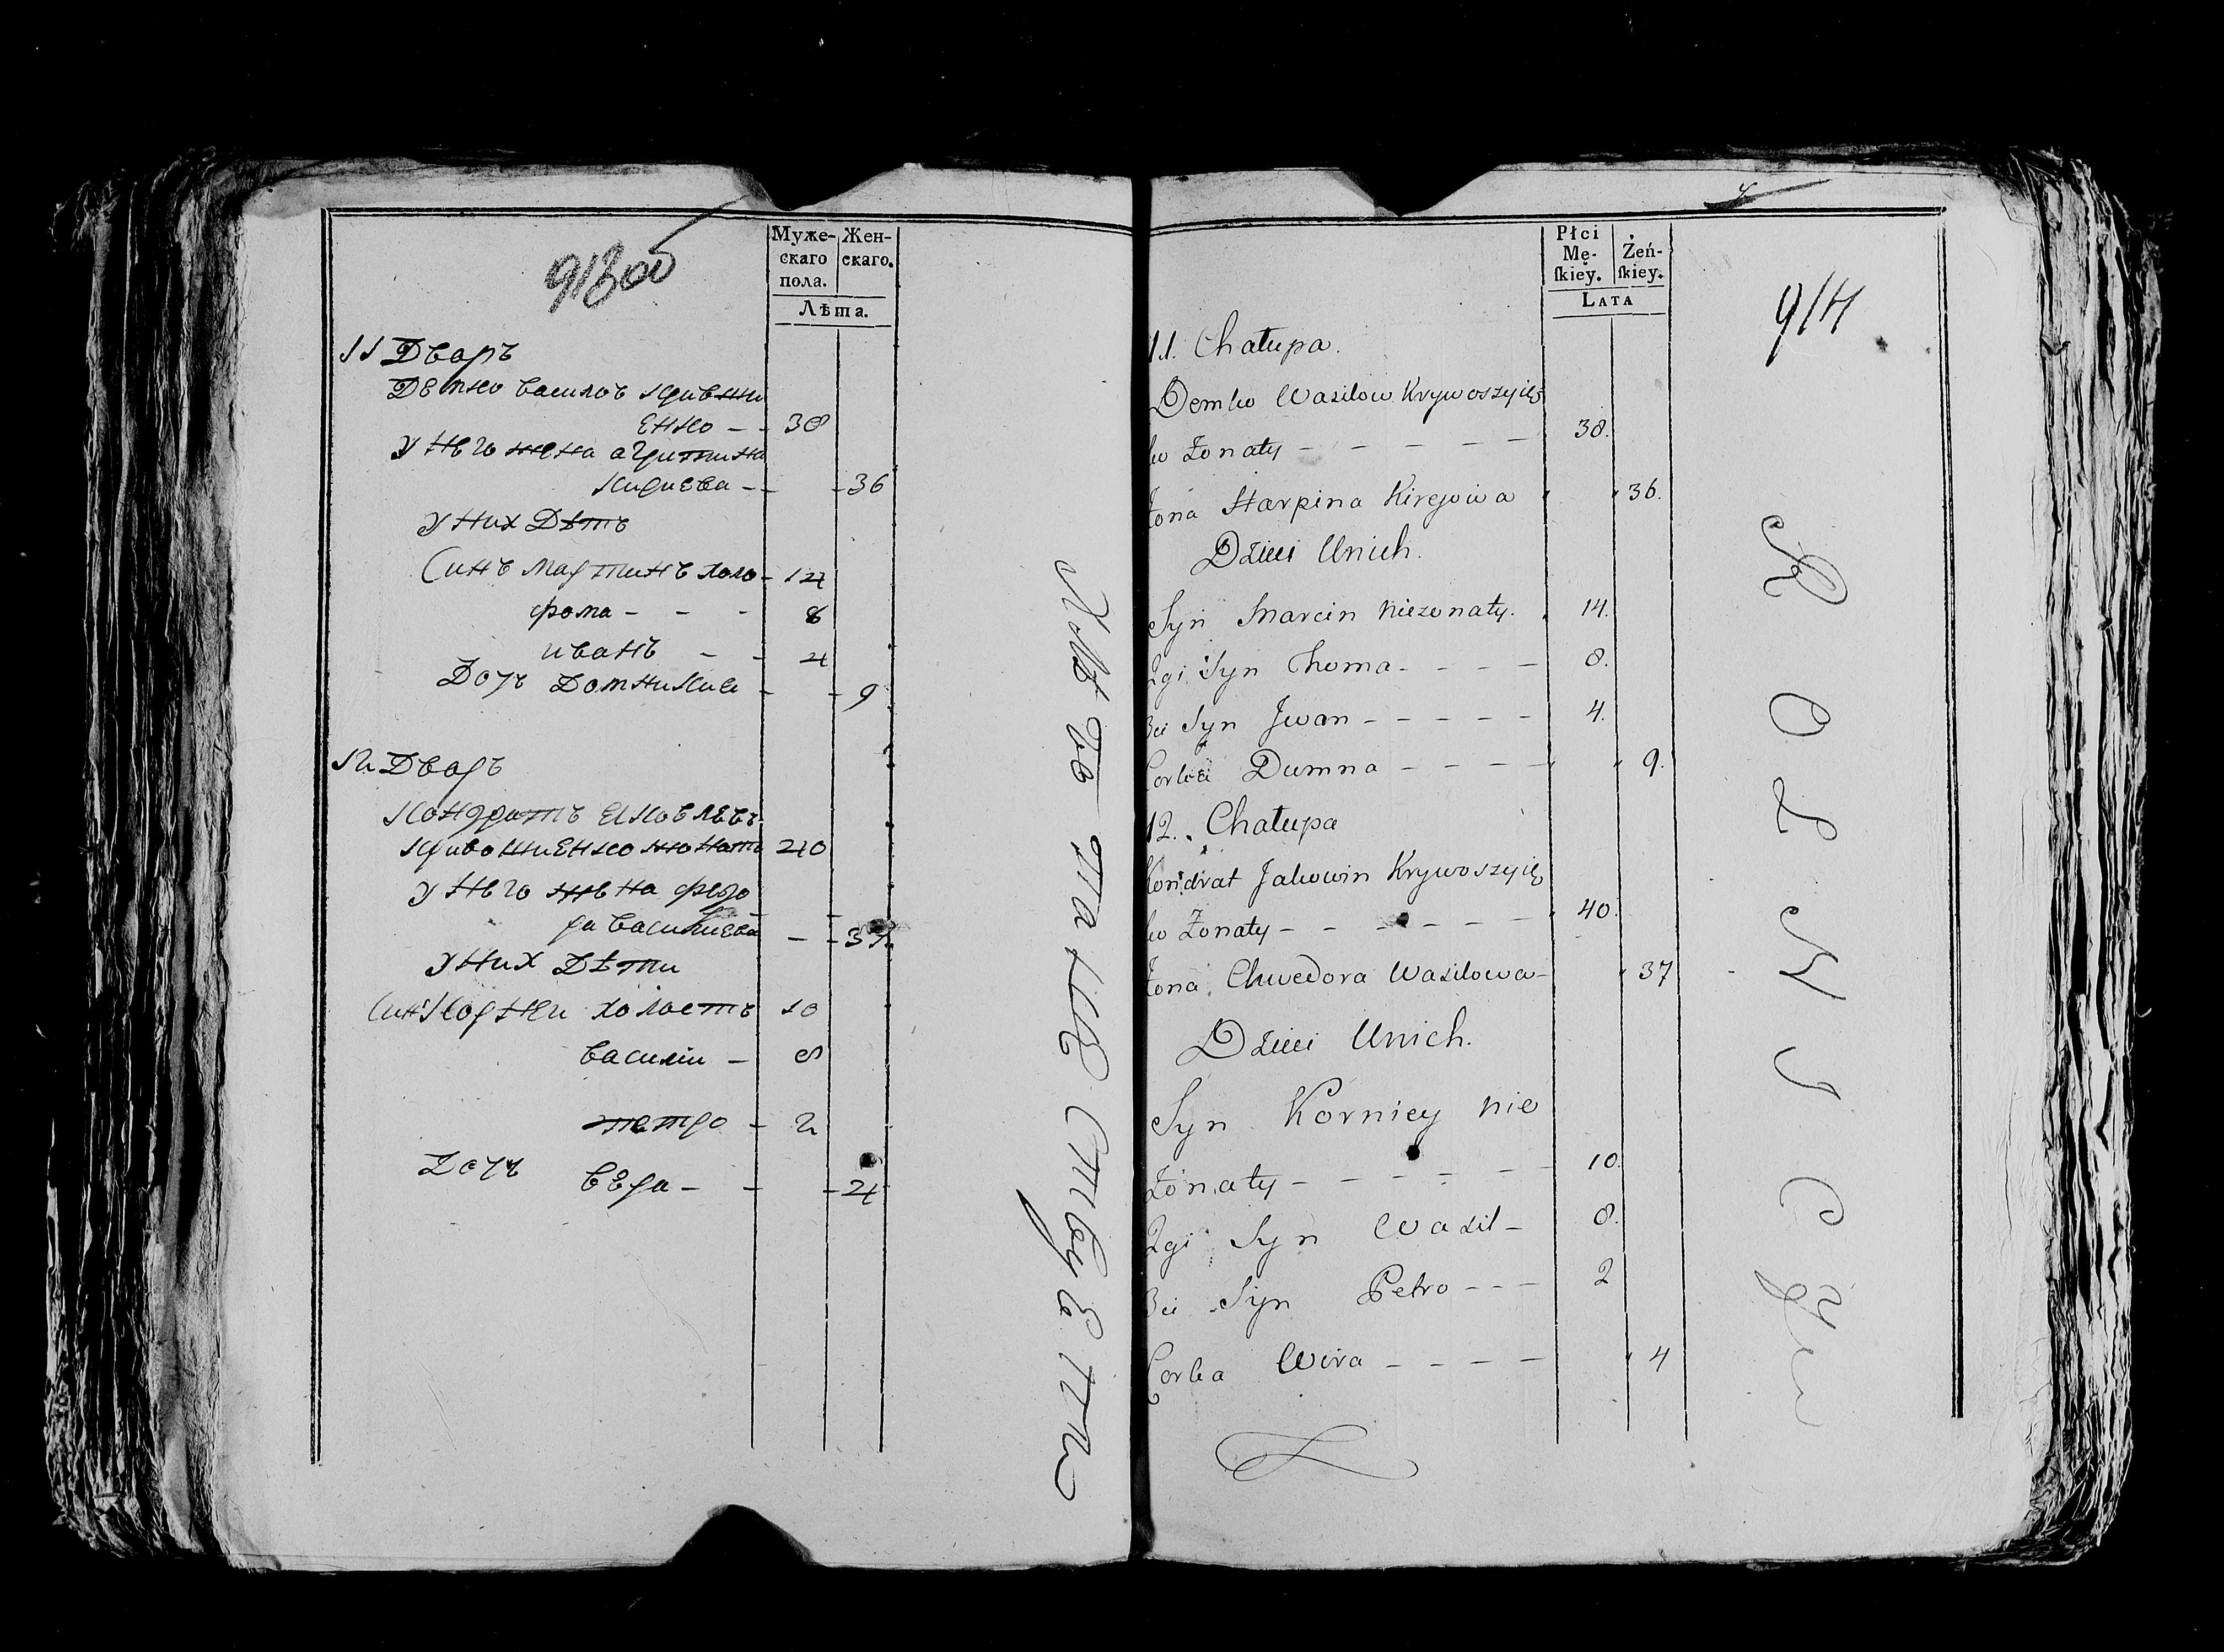 913 об
Муже-
скаго
пола.
Жен-
скаго.
Лѣта.
11 Дворъ
Демко Василовъ Кривши
енко - - 38
у Нѣго жена агрипина
Кириева - - 36
у них Дѣтъ
Синъ Мартинъ холо - 14
фома - - - 8
иванъ - - 4
Дочъ Домникия - - 9
12 Дворъ
Кондратъ Яковлевъ
Кривошиенко жонатъ 40
у Нѣго жѣна Федо
ра Василиева - - 37
у них Дѣти
Синъ Корнеи холостъ 10
Василии - 8
петро - 2
Дочъ Вѣра - - 4
Płci
Mę-
skiey.
Żeń-
skiey.
LATA
914
11. Chałupa.
Demko Wasilow Krywoszyię
ko Żonaty - - - - - 38.
Żona Harpina Kirejowa 36.
Dzieci Unich.
Syn Marcin Niezonaty. 14.
2gi Syn Choma - - - - 8.
3ci Syn Jwan - - - - - 4.
Corka Dumna - - - - 9.
12. Chałupa
Kondrat Jakowin Krywoszyię
ko Żonaty - - - - - - 40
Żona Chwedora Wasilowa - 37
Dzieci Unich.
Syn Korniey nie
żonaty - - - - - - 10.
2gi Syn Wasil - 8.
3ci Syn Petro - - - 2
Corka Wira - - - - 4